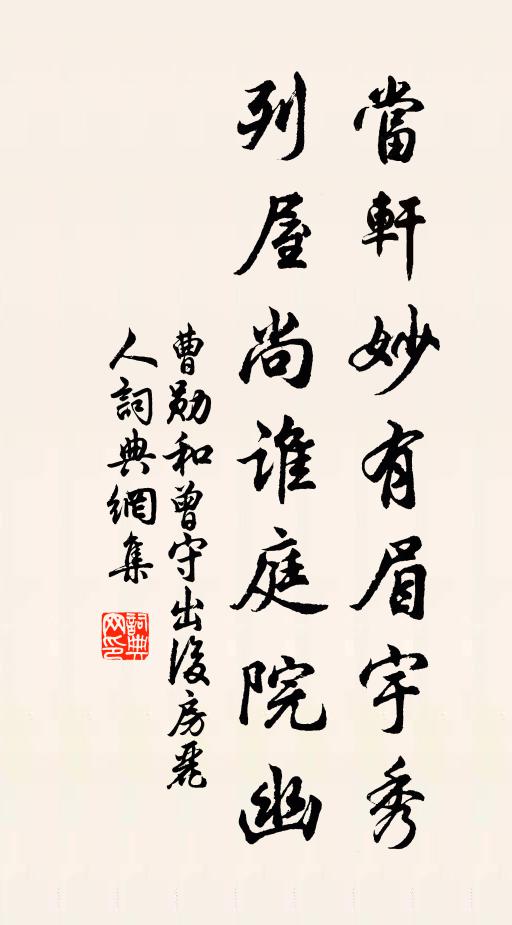 當軒妙有眉宇秀
列屋尚誰庭院幽
曹勛和曾守出後房麗
人詞典網集
詞典网印